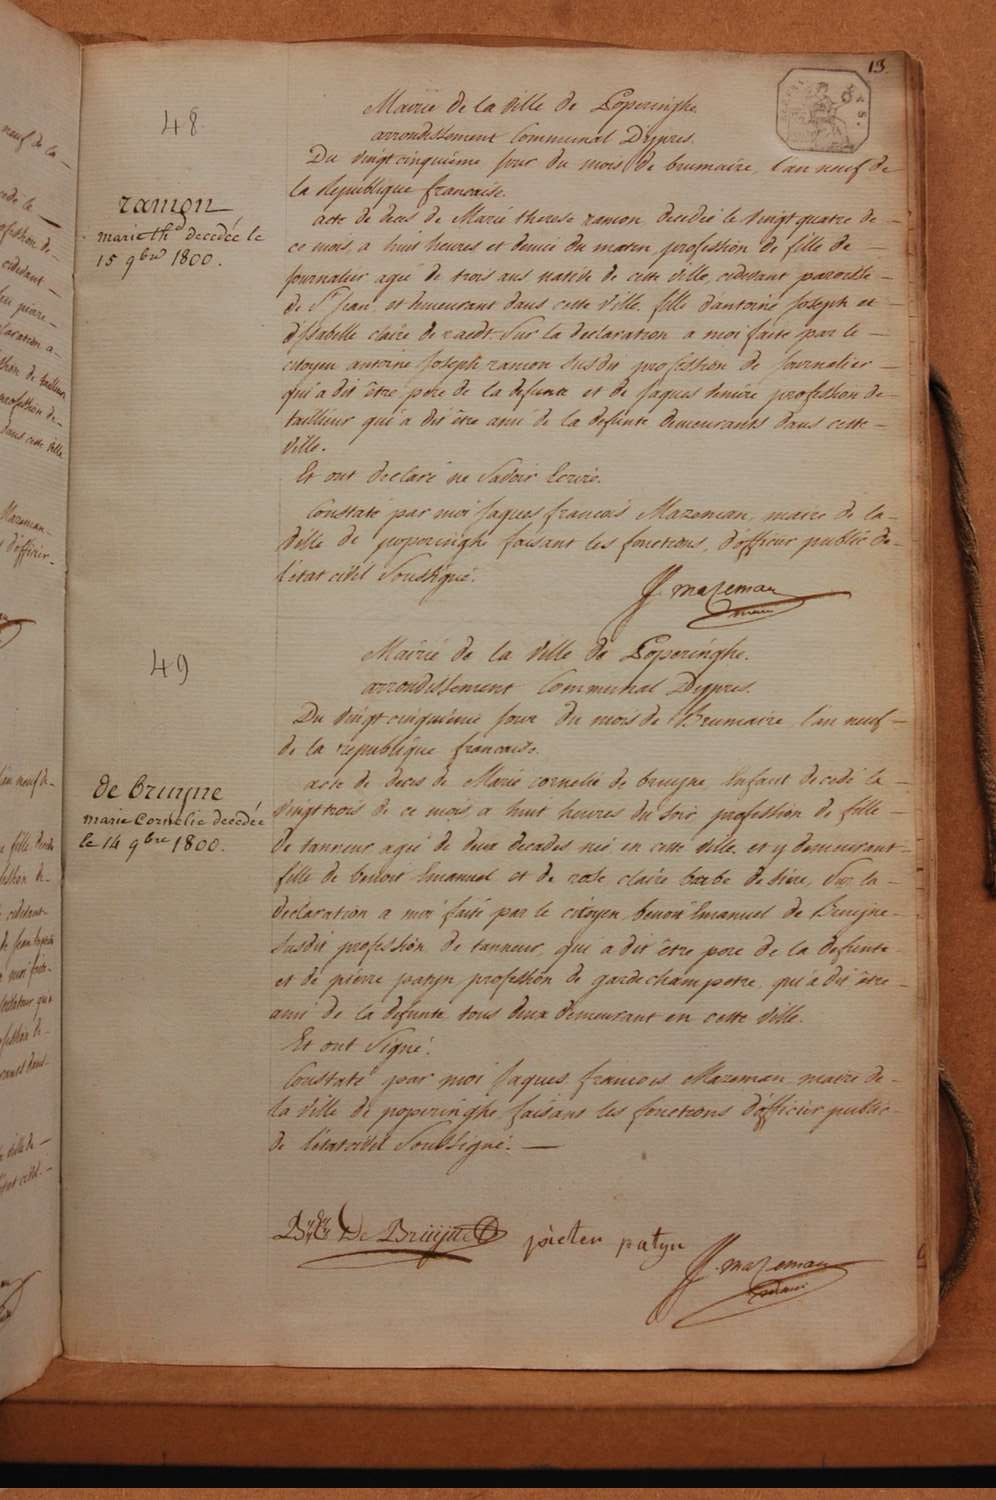 13.
48
Mairie de la ville de Poperinghe
arrondissement Communal Dypres.
Du vingt cinquième jour du mois de brumaire, l'an neuf de
la republique francaise.
ramon
marie thse decedée le
15 9bre 1800.
acte de deces de Marie therese ramon decedée le vingt quatre de
ce mois, a huit heures et demie du matin, profession de fille de
journalier agée de trois ans native de cette ville, cidevant paroisse
de St Jean, et demeurant dans cette ville, fille d'antoine Joseph et
d'isabelle claire de raedt. Sur la declaration a moi faite par le
citoyen antoine Joseph ramon susdit profession de journalier
qui a dit être pere de la defunte et de Jaques profession de
tailleur qui a dit être ami de la defunte demeurants dans cette
ville.
Et ont declaré ne Savoir Ecrire.
Constaté par moi Jaques francois Mazeman, maire de la
ville de poperinghe faisant les fonctions, d'officier public de
l'état civil Soussigné.
JJ. mazeman
maire
49
Mairie de la ville de Poperinghe.
arrondissement Communal Dypres.
Du vingt cinquième jour du mois de Brumaire, l'an neuf
de la republique francaise.
de Bruyne
marie Cornelie decedée
le 14 9bre 1800.
acte de deces de Marie cornelie de bruyne, Enfant decedé le
vingt trois de ce mois, a huit heures du soir, profession de fille
de tanneur agée de deux decades née en cette ville, et y demeurant
fille de benoit Emanuel et de rose claire barbe, Sur la
declaration a moi faite par le citoyen benoit Emanuel de Bruyne
susdit profession de tanneur, qui a dit être pere de la defunte
et de pierre patyn profession de gardechampetre, qui a dit être
ami de la defunte, tous deux demeurant en cette ville.
Et ont Signé.
Constaté par moi Jaques francois Mazeman maire de
la ville de poperinghe, faisant les fonctions d'officier public
de l'état civil Soussigné.
De Bruijne
pieter patyn
JJ. mazeman
maire